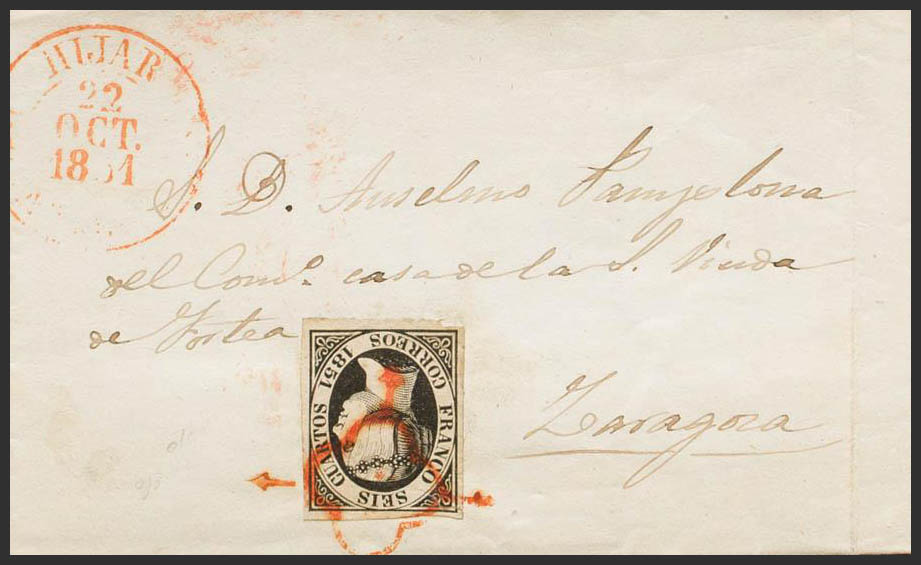 HIJAR
22
OCT.
1851
S. D. Anselmo Pamplona
del Comº. casa de la S. Viuda
de Fortea
CORREOS 1851
FRANCO SEIS CUARTOS
Zaragoza